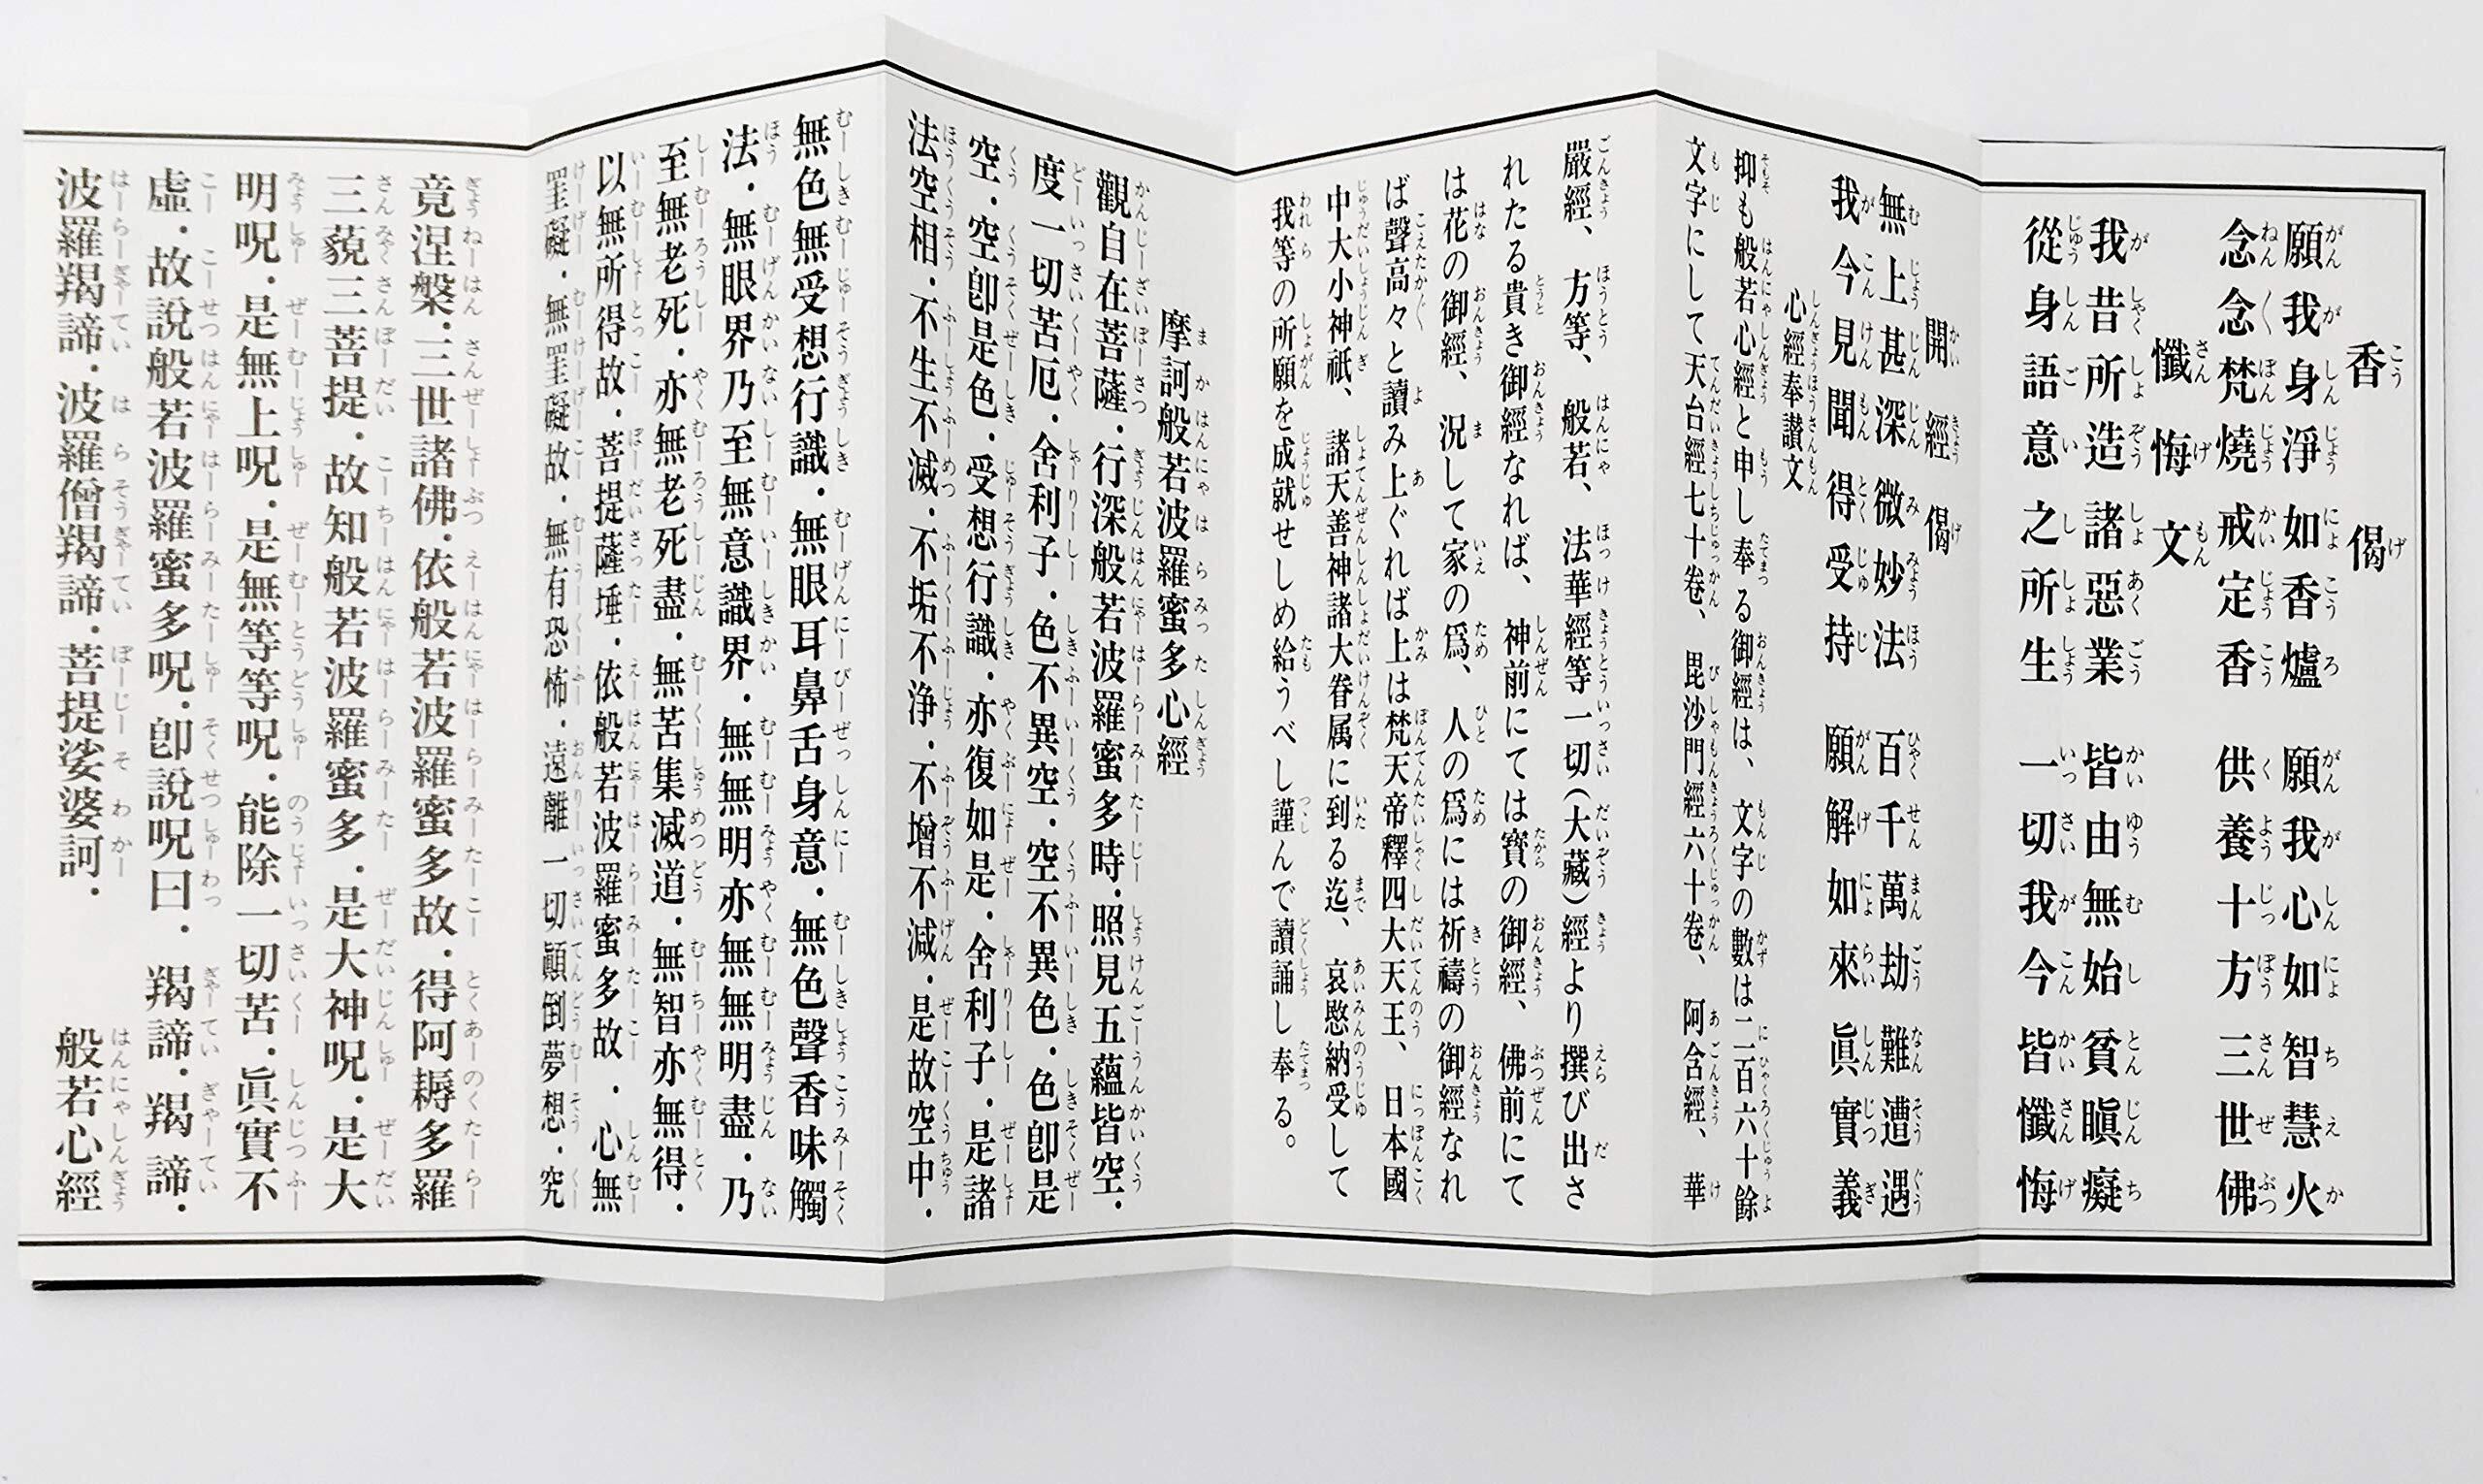 香偈
願我身淨如香爐　願我心如智慧火
念念梵燒戒定香　供養十方三世佛
懺悔文
我昔所造諸惡業　皆由無始貪瞋癡
從身語意之所生　一切我今皆懺悔
開經偈
無上甚深微妙法　百千萬劫難遭遇
我今見聞得受持　願解如來眞實義
心經奉讃文
抑も般若心經と申し奉る御經は、文字の數は二百六十餘
文字にして天台經七十卷、毘沙門經六十卷、阿含經、華
嚴經、方等、般若、法華經等一切(大藏)經より撰び出さ
れたる貴き御經なれば、神前にては寳の御經、佛前にて
は花の御經、況して家の爲、人の爲には祈禱の御經なれ
ば聲高々と讀み上ぐれば上は梵天帝釋四大天王、日本國
中大小神祇、諸天善神諸大眷属に到る迄、哀愍納受して
我等の所願を成就せしめ給うべし謹んで讀誦し奉る。
摩訶般若波羅蜜多心經
觀自在菩薩．行深般若波羅蜜多時．照見五蘊皆空．
度一切苦厄．舍利子．色不異空．空不異色．色卽是
空．空卽是色．受想行識．亦復如是．舍利子．是諸
法空相．不生不滅．不垢不浄．不增不減．是故空中．
無色無受想行識．無眼耳鼻舌身意．無色聲香味觸
法．無眼界乃至無意識界．無無明亦無無明盡．乃
至無老死．亦無老死盡．無苦集滅道．無智亦無得．
以無所得故．菩提薩埵．依般若波羅蜜多故．心無
罣礙．無罣礙故．無有恐怖．遠離一切顚倒夢想．究
竟涅槃．三世諸佛．依般若波羅蜜多故．得阿耨多羅
三藐三菩提．故知般若波羅蜜多．是大神呪．是大
明呪．是無上呪．是無等等呪．能除一切苦．眞實不
虛．故說般若波羅蜜多呪．卽說呪曰．羯諦．羯諦．
波羅羯諦．波羅僧羯諦．菩提娑婆訶．　般若心經